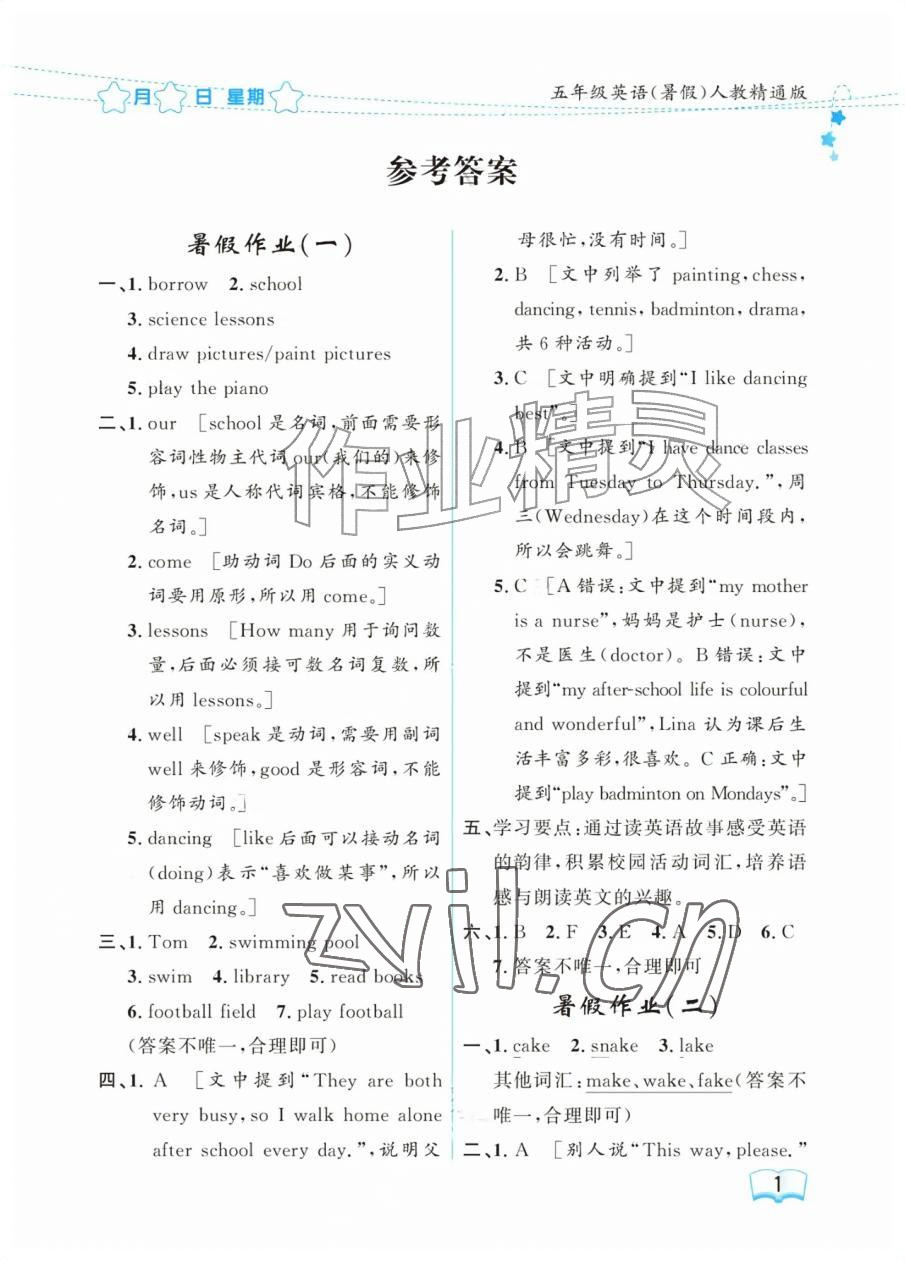 月 日 星期
五年级英语(暑假)人教精通版
参考答案
暑假作业(一)
一、1. borrow 2. school
3. science lessons
4. draw pictures/paint pictures
5. play the piano
二、1. our [school 是名词,前面需要形
容词性物主代词 our(我们的)来修
饰,us 是人称代词宾格,不能修饰
名词。]
2. come [助动词 Do 后面的实义动
词要用原形,所以用 come。]
3. lessons [How many 用于询问数
量,后面必须接可数名词复数,所
以用 lessons。]
4. well [speak 是动词,需要用副词
well 来修饰,good 是形容词,不能
修饰动词。]
5. dancing [like 后面可以接动名词
(doing)表示“喜欢做某事”,所以
用 dancing。]
三、1. Tom 2. swimming pool
3. swim 4. library 5. read books
6. football field 7. play football
(答案不唯一,合理即可)
四、1. A [文中提到“They are both
very busy, so I walk home alone
after school every day.”,说明父
母很忙,没有时间。]
2. B [文中列举了 painting, chess,
dancing, tennis, badminton, drama,
共 6 种活动。]
3. C [文中明确提到“I like dancing
best”。]
4. B [文中提到“I have dance classes
from Tuesday to Thursday.”,周
三(Wednesday)在这个时间段内,
所以会跳舞。]
5. C [A 错误:文中提到“my mother
is a nurse”,妈妈是护士(nurse),
不是医生(doctor)。B 错误:文中
提到“my after-school life is colourful
and wonderful”,Lina 认为课后生
活丰富多彩,很喜欢。C 正确:文中
提到“play badminton on Mondays”。]
五、学习要点:通过读英语故事感受英语
的韵律,积累校园活动词汇,培养语
感与朗读英文的兴趣。
六、1. B 2. F 3. E 4. A 5. D 6. C
7. 答案不唯一,合理即可
暑假作业(二)
一、1. cake 2. snake 3. lake
其他词汇:make, wake, fake(答案不
唯一,合理即可)
二、1. A [别人说“This way, please.”
1
作业精灵
zyjl.cn